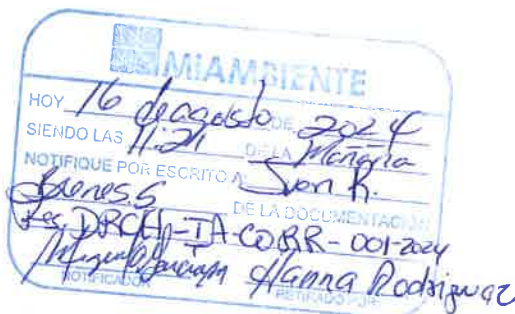 MIAMBIENTE
HOY 16 de agosto DE 2024
SIENDO LAS 11:21 DE LA Mañana
NOTIFIQUE POR ESCRITO A
DE LA DOCUMENTACIÓN
Res. DRCH-IA-CORR-001-2024
Hanna Rodriguez
NOTIFICADOR RETIRADO POR